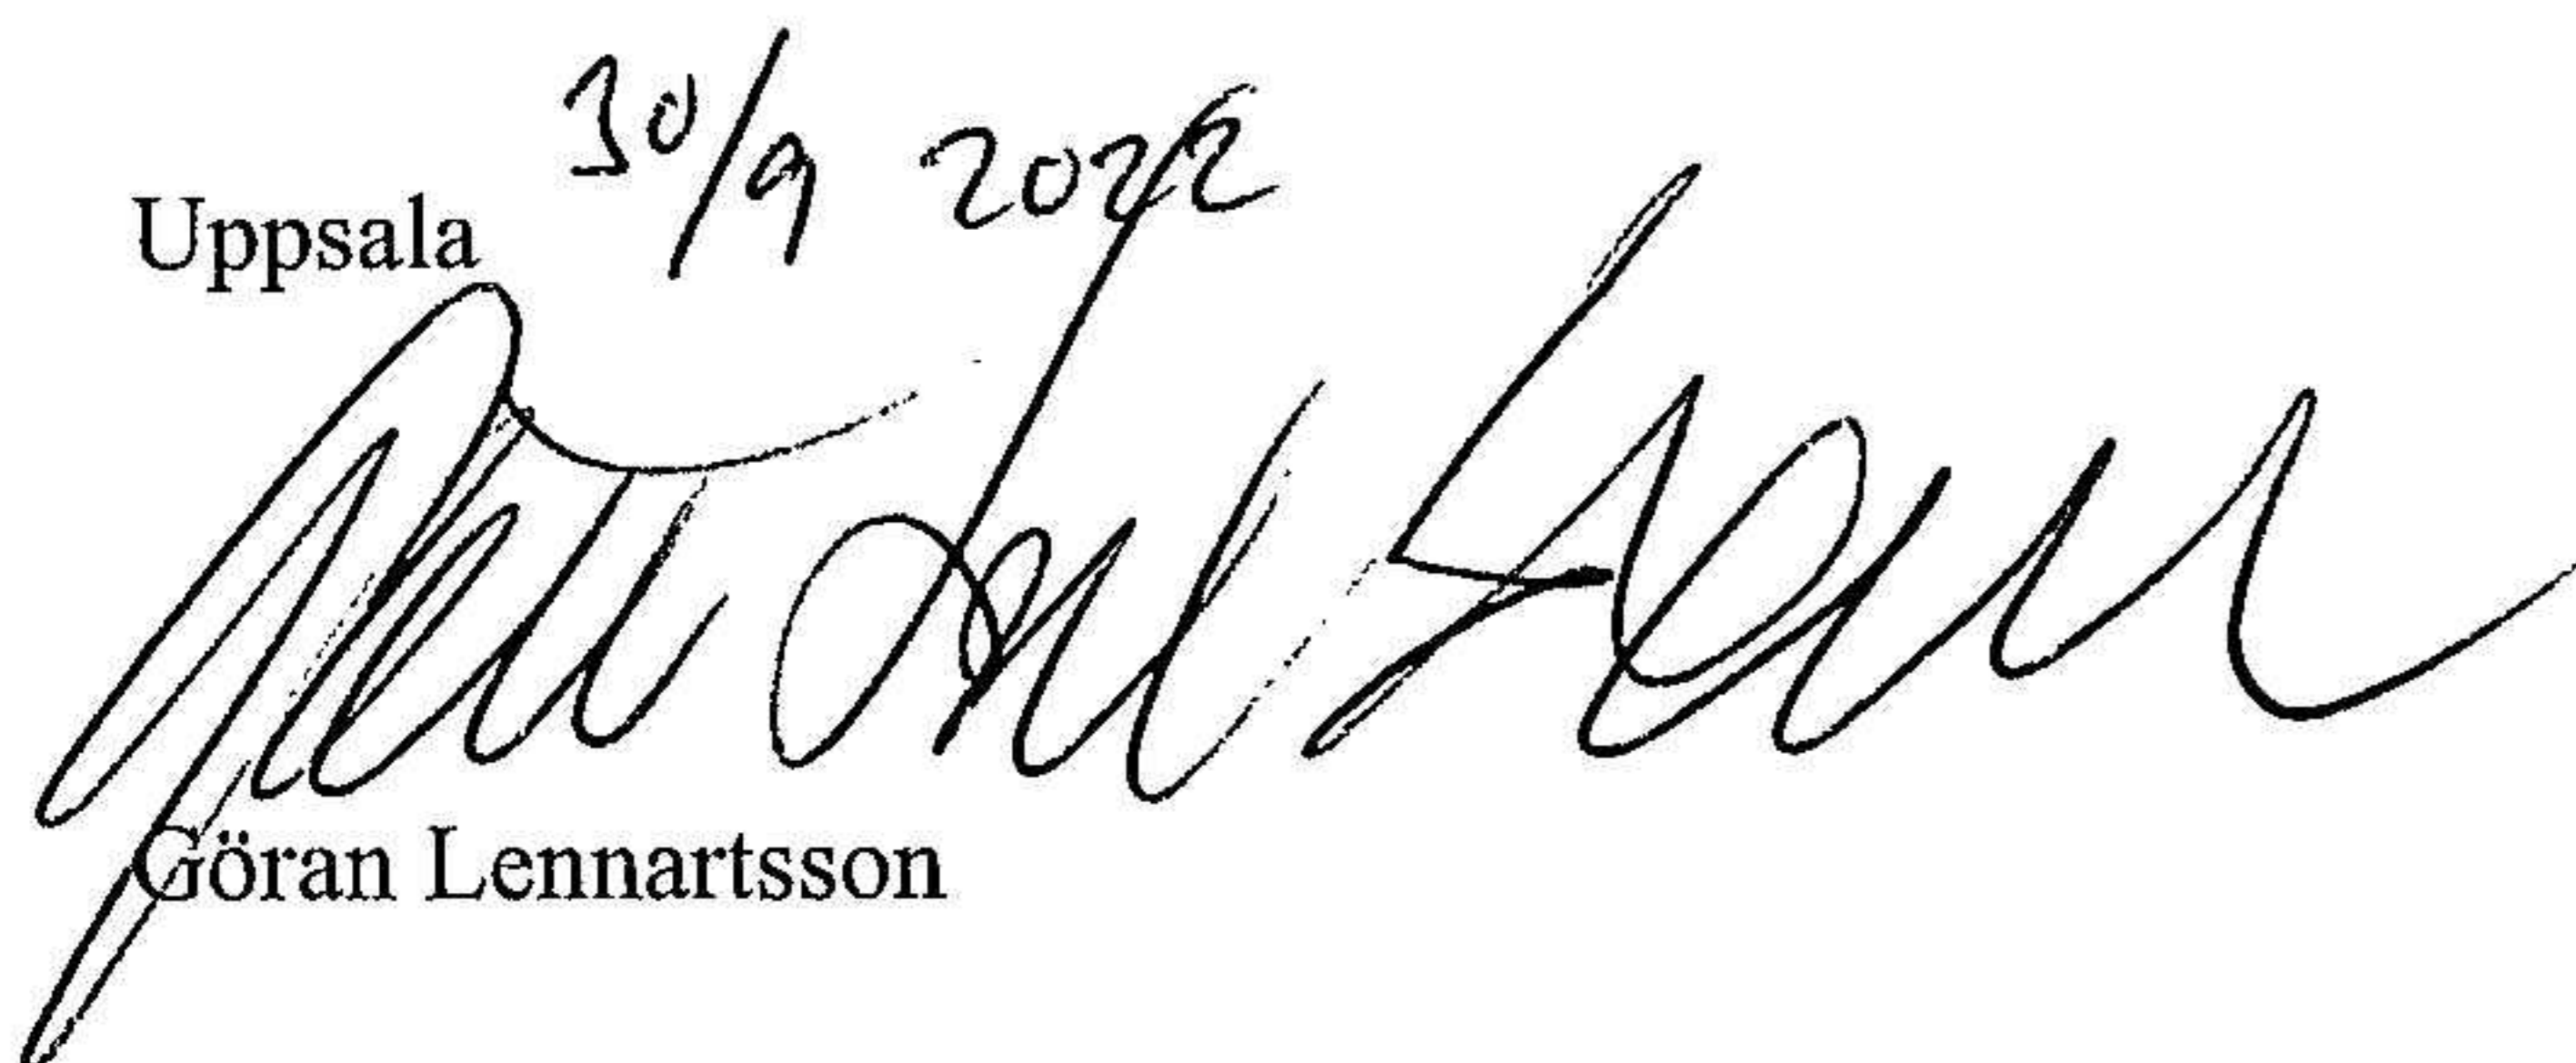 Uppsala 30/9 2022
Göran Lennartsson